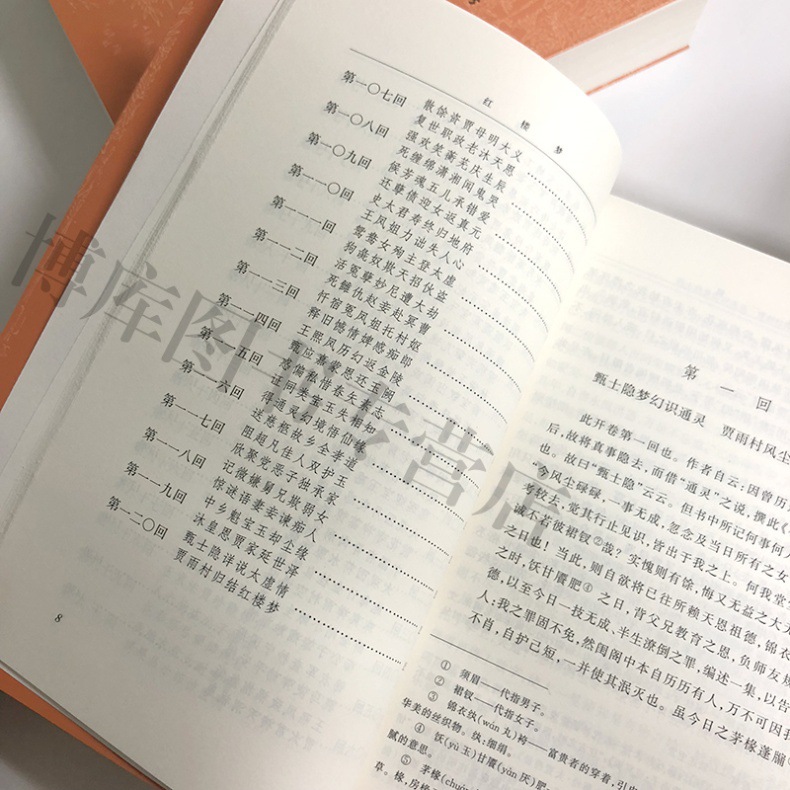 红楼梦
第一〇七回 散馀资贾母明大义
复世职政老沐天恩
第一〇八回 强欢笑蘅芜庆生辰
死缠绵潇湘闻鬼哭
第一〇九回 候芳魂五儿承错爱
还孽债迎女返真元
第一一〇回 史太君寿终归地府
王凤姐力诎失人心
第一一一回 鸳鸯女殉主登太虚
狗彘奴欺天招伙盗
第一一二回 活冤孽妙尼遭大劫
死雠仇赵妾赴冥曹
第一一三回 忏宿冤凤姐托村妪
释旧憾情婢感痴郎
第一一四回 王熙凤历幻返金陵
甄应嘉蒙恩还玉阙
第一一五回 惑偏私惜春矢素志
证同类宝玉失相知
第一一六回 得通灵幻境悟仙缘
送慈柩故乡全孝道
第一一七回 阻超凡佳人双护玉
欣聚党恶子独承家
第一一八回 记微嫌舅兄欺弱女
惊谜语妻妾谏痴人
第一一九回 中乡魁宝玉却尘缘
沐皇恩贾家延世泽
第一二〇回 甄士隐详说太虚情
贾雨村归结红楼梦
8
第一回
甄士隐梦幻识通灵 贾雨村风尘
此开卷第一回也。作者自云:因曾历
后,故将真事隐去,而借“通灵”之说,撰此《
也。故曰“甄士隐”云云。但书中所记何事何人
“今风尘碌碌,一事无成,忽念及当日所有之女
考较去,觉其行止见识,皆出于我之上。何我堂
诚不若彼裙钗②哉?实愧则有馀,悔又无益之大无
之日也!当此,则自欲将已往所赖天恩祖德,锦衣
之时,饫甘餍肥④之日,背父兄教育之恩,负师友规
德,以至今日一技无成、半生潦倒之罪,编述一集,以告
人:我之罪固不免,然闺阁中本自历历有人,万不可因我
不肖,自护己短,一并使其泯灭也。虽今日之茅椽蓬牖
① 须眉——代指男子。
② 裙钗——代指女子。
③ 锦衣纨(wán 丸)袴——富贵者的穿着,引
华美的丝织物。纨:细绢。
④ 饫(yù 玉)甘餍(yàn 厌)肥
腻的意思。
⑤ 茅椽(chuán
草。椽,房
博库图书专营店